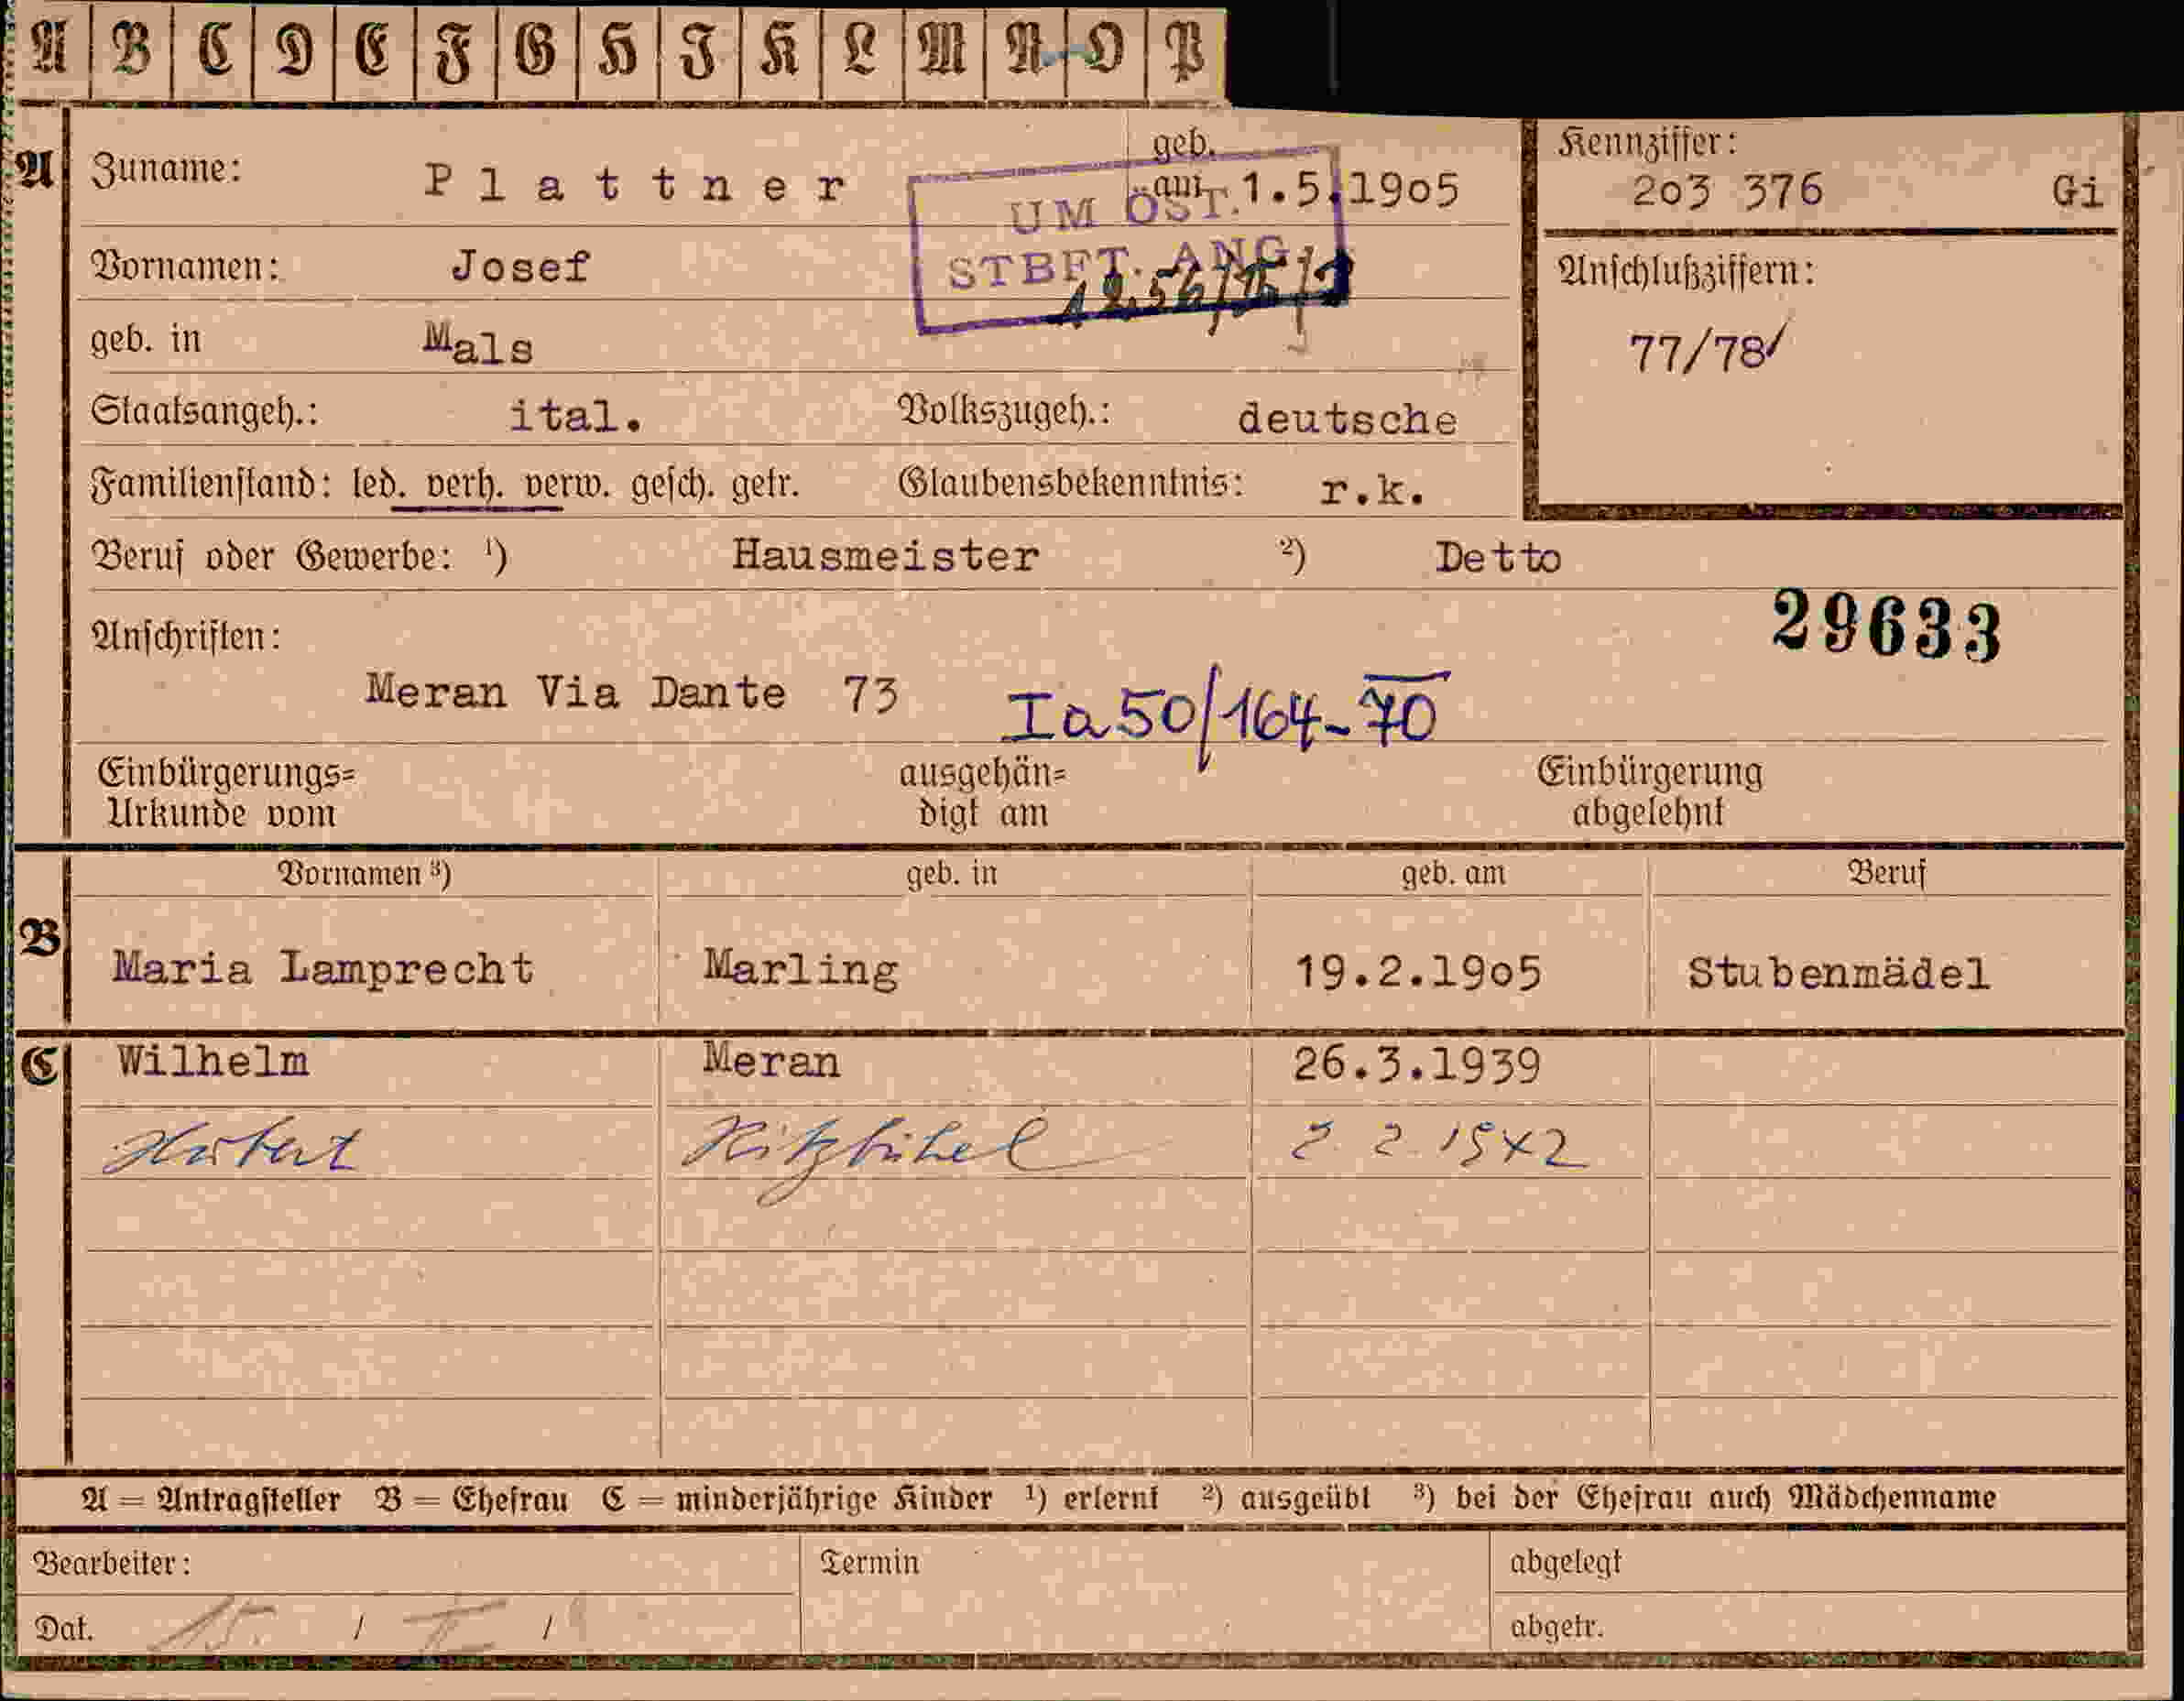 A B C D E F G H J K L M N O P
A Zuname: Plattner geb. am 1.5.1905 Kennziffer:
203 376 Gi
UM ÖST.
STBFT. ANG
Vornamen: Josef Anschlußziffern:
geb. in Mals 77/78/
Staatsangeh.: ital. Volkszugeh.: deutsche
Familienstand: led. verh. verw. gesch. getr. Glaubensbekenntnis: r.k.
Beruf oder Gewerbe: ¹) Hausmeister ²) Detto
29633
Anschriften:
Meran Via Dante 73 Ia 50/164-70
Einbürgerungs= ausgehän= Einbürgerung
Urkunde vom digt am abgelehnt
Vornamen ³) geb. in geb. am Beruf
B Maria Lamprecht Marling 19.2.1905 Stubenmädel
C Wilhelm Meran 26.3.1939
Herbert Kitzbühel 2. 2. 1942
A = Antragsteller B = Ehefrau C = minderjährige Kinder ¹) erlernt ²) ausgeübt ³) bei der Ehefrau auch Mädchenname
Bearbeiter: Termin abgelegt
Dat. 15. / / abgetr.